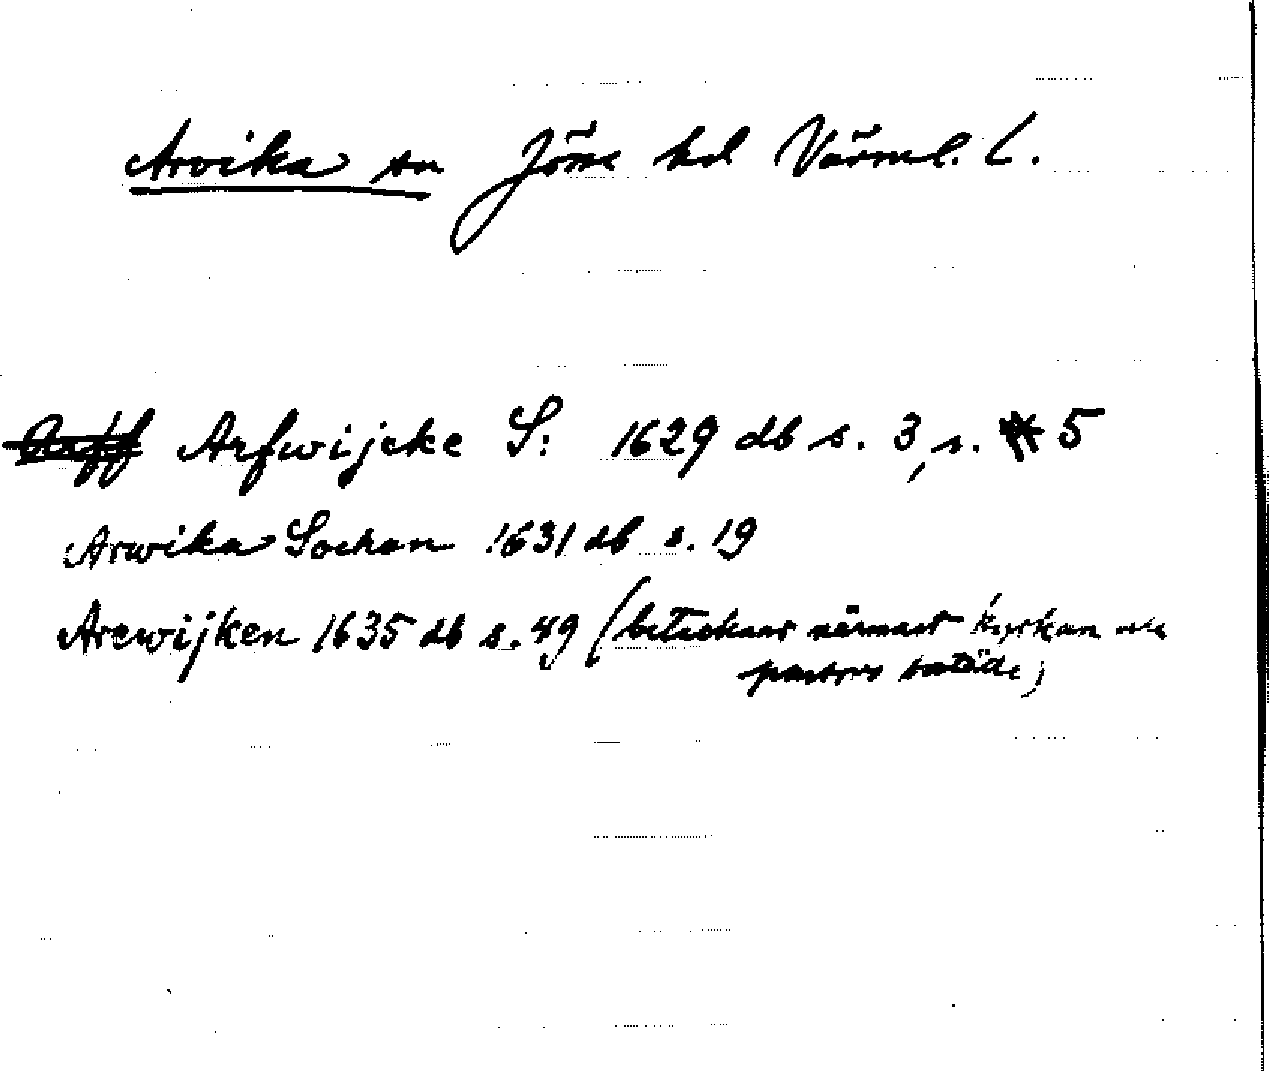 Arvika sn Jösse hd Värml. L.
Arfwijcke S: 1629 db s. 3, s. 5
Arwika Sochan 1631 db s. 19
Arewijken 1635 db s. 49 (betecknar närmast kyrkan och
pastors boställe)